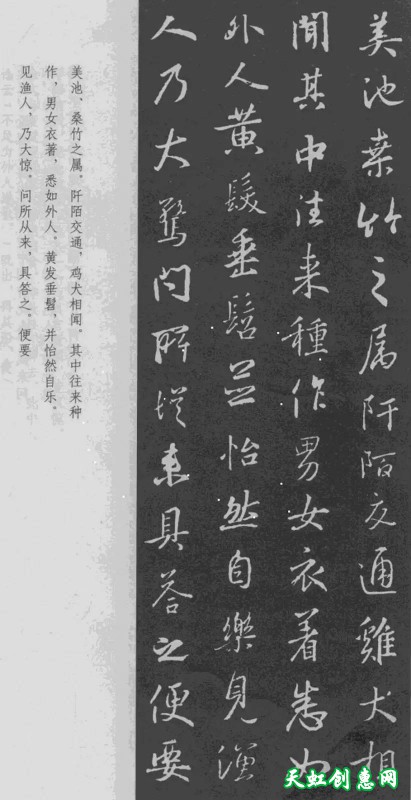 美池桑竹之属阡陌交通雞犬相
聞其中往来種作男女衣着悉如
外人黄髮垂髫並怡然自樂見漁
人乃大驚問所從来具答之便要
美池、桑竹之属。阡陌交通，鸡犬相闻。其中往来种
作，男女衣著，悉如外人。黄发垂髫，并怡然自乐。
见渔人，乃大惊。问所从来，具答之。便要
天虹创惠网